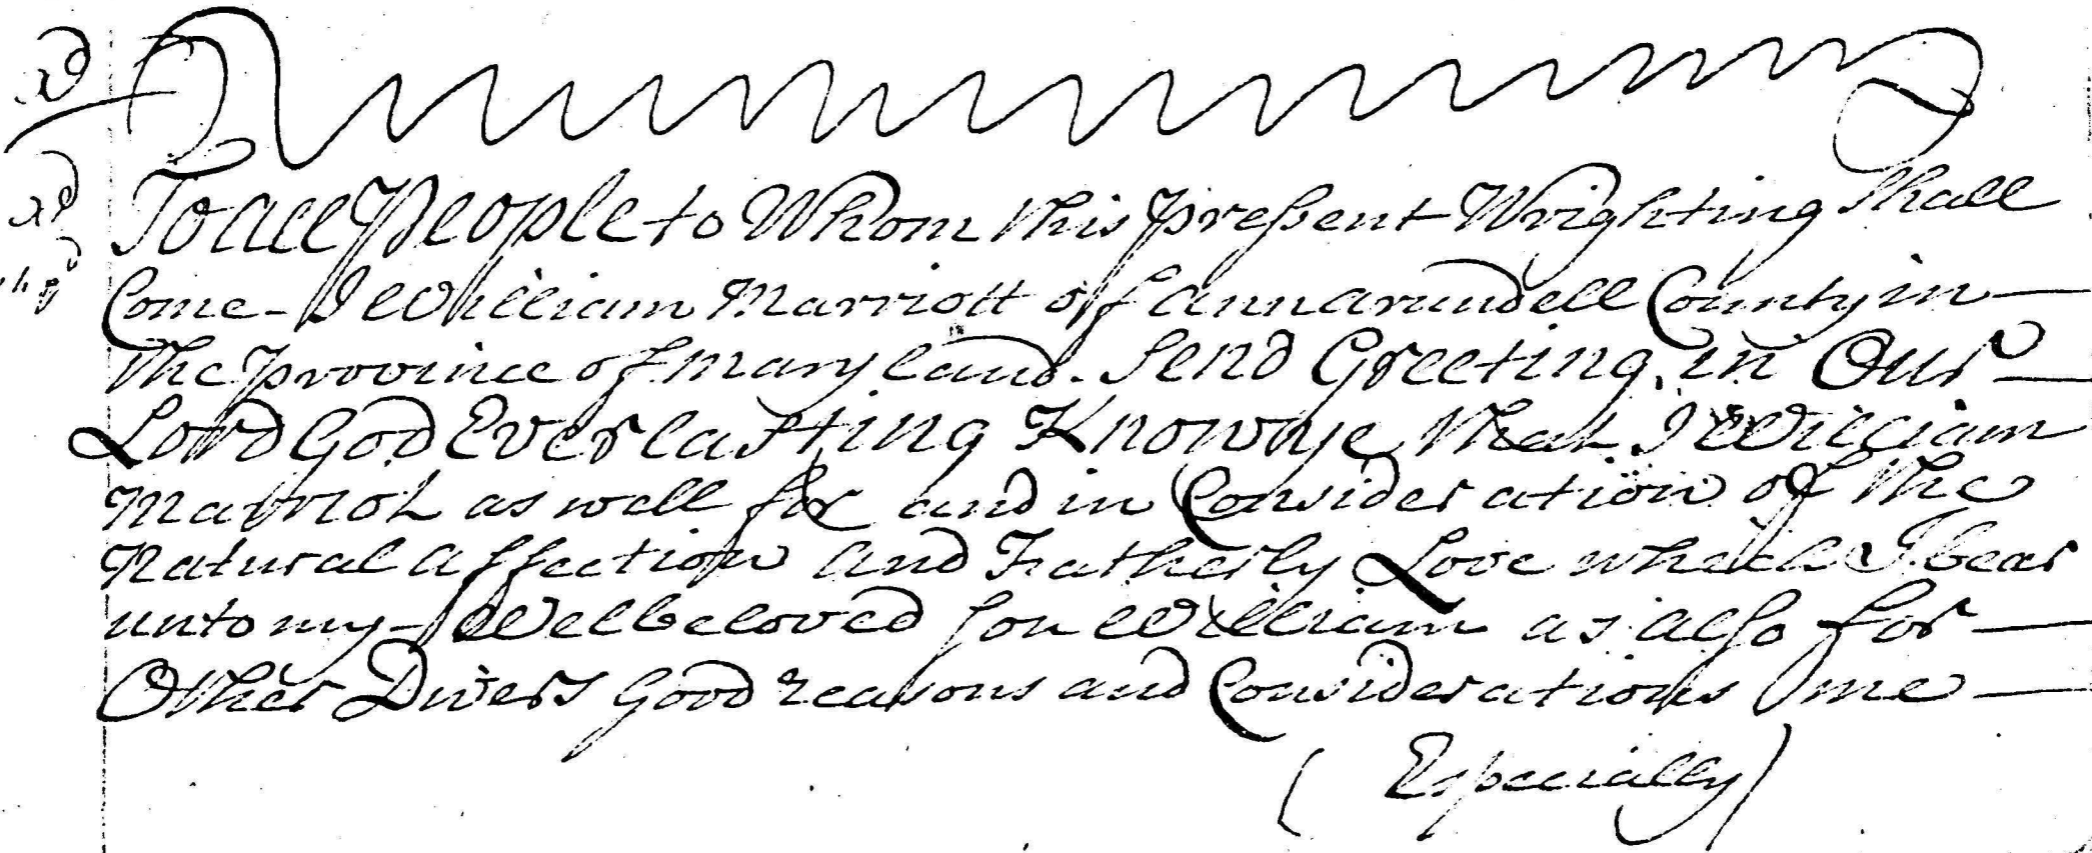 To all People to Whom this pressent Wrighting Shall
Come - I William Marriott of annarundell County in —
the province of Maryland. Send Greeting, in Our —
Lord God Everlasting Know ye that I William
Marriott as well for and in Consideration of the
Natural affection and Fatherly Love which I bear
unto my - Welbeloved Son William as also for —
Other Divers good reasons and Considerations me —
( Especially )